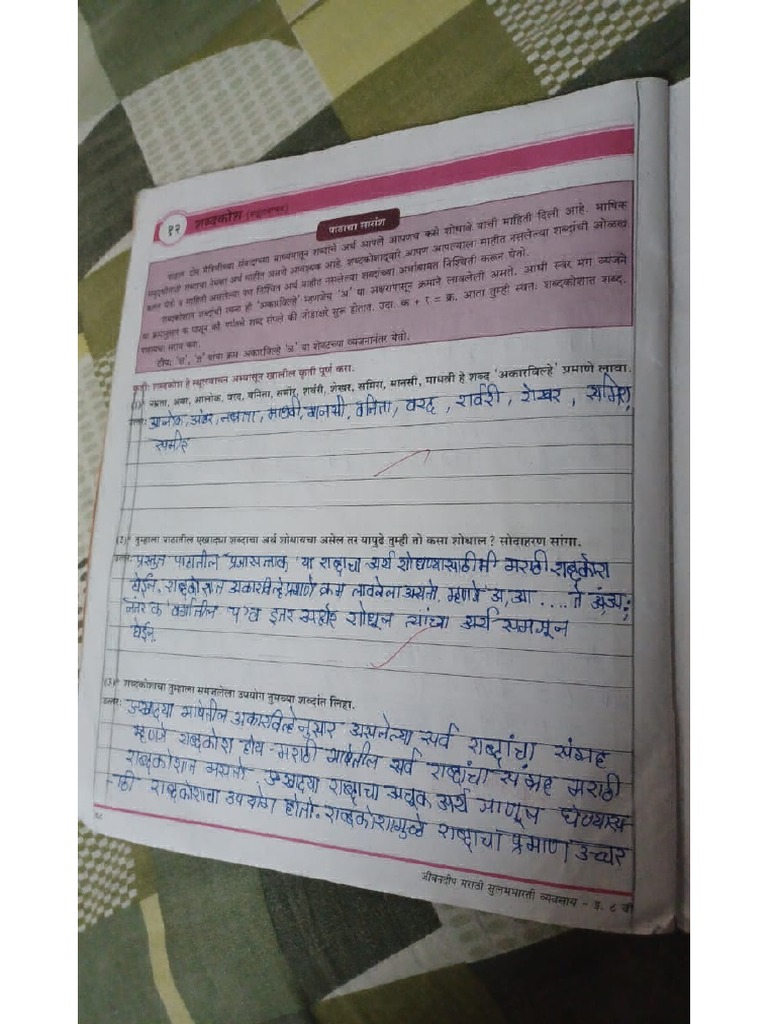 १२
शब्दकोश (स्थूलवाचन)
पाठाचा सारांश
सदान दोन मैत्रिणींच्या संवादाच्या माध्यमातून शब्दांचे अर्थ आपले आपणच कसे शोधावे याची माहिती दिली आहे. भाषिक
समृद्धीसाठी शब्दांचा नेमका अर्थ माहीत असणे आवश्यक आहे. शब्दकोशाद्वारे आपण आपल्याला माहीत नसलेल्या शब्दांची ओळख
करून घेतो व माहिती असलेल्या पण निश्चित अर्थ माहीत नसलेल्या शब्दांच्या अर्थाबाबत निश्चिती करून घेतो.
शब्दकोशात शब्दांची रचना ही 'अकारविल्हे' म्हणजेच 'अ' या अक्षरापासून क्रमाने लावलेली असते. आधी स्वर मग व्यंजने
या क्रमानुसार क पासून की वर्णाचे शब्द संपले की जोडाक्षरे सुरू होतात. उदा. क + र = क्र. आता तुम्ही स्वतः शब्दकोशात शब्द
शोधायचा सराव करा.
टीप: 'क्ष', 'ज्ञ' यांचा क्रम अकारविल्हे 'ळ' या शेवटच्या व्यंजनानंतर येतो.
कृती: शब्दकोश हे स्थूलवाचन अभ्यासून खालील कृती पूर्ण करा.
(1)* नम्रता, अंबर, आलोक, वरद, वनिता, समीर, शर्वरी, शेखर, समिरा, मानसी, माधवी हे शब्द 'अकारविल्हे' प्रमाणे लावा.
उत्तर: आलोक, अंबर, नम्रता, माधवी, मानसी, वनिता, वरद, शर्वरी, शेखर, समिरा,
समीर
(2)* तुम्हाला पाठातील एखाद्या शब्दाचा अर्थ शोधायचा असेल तर यापुढे तुम्ही तो कसा शोधाल ? सोदाहरण सांगा.
उत्तर: प्रस्तुत पाठातील 'प्रजासत्ताक' या शब्दाचा अर्थ शोधण्यासाठी मी मराठी शब्दकोश
घेईन. शब्दकोशात अकारविल्हे प्रमाणे क्रम लावलेला असतो. म्हणजे अ, आ .... ते अं, अः;
नंतर क वर्गातील व इतर शोधून त्यांचा अर्थ समजून
घेईन.
(3)* शब्दकोशाचा तुम्हाला समजलेला उपयोग तुमच्या शब्दांत लिहा.
उत्तर: एखाद्या भाषेतील अकारविल्हेनुसार असलेल्या सर्व शब्दांचा संग्रह
म्हणजे शब्दकोश होय. मराठी भाषेतील सर्व शब्दांचा संग्रह मराठी
शब्दकोशात असतो. एखाद्या शब्दाचा अचूक अर्थ जाणून घेण्यास
- ठी शब्दकोशाचा उपयोग होतो. शब्दकोशामुळे शब्दाचा प्रमाण उच्चार
जीवनदीप मराठी सुलभभारती व्यवसाय - इ. ८ वी